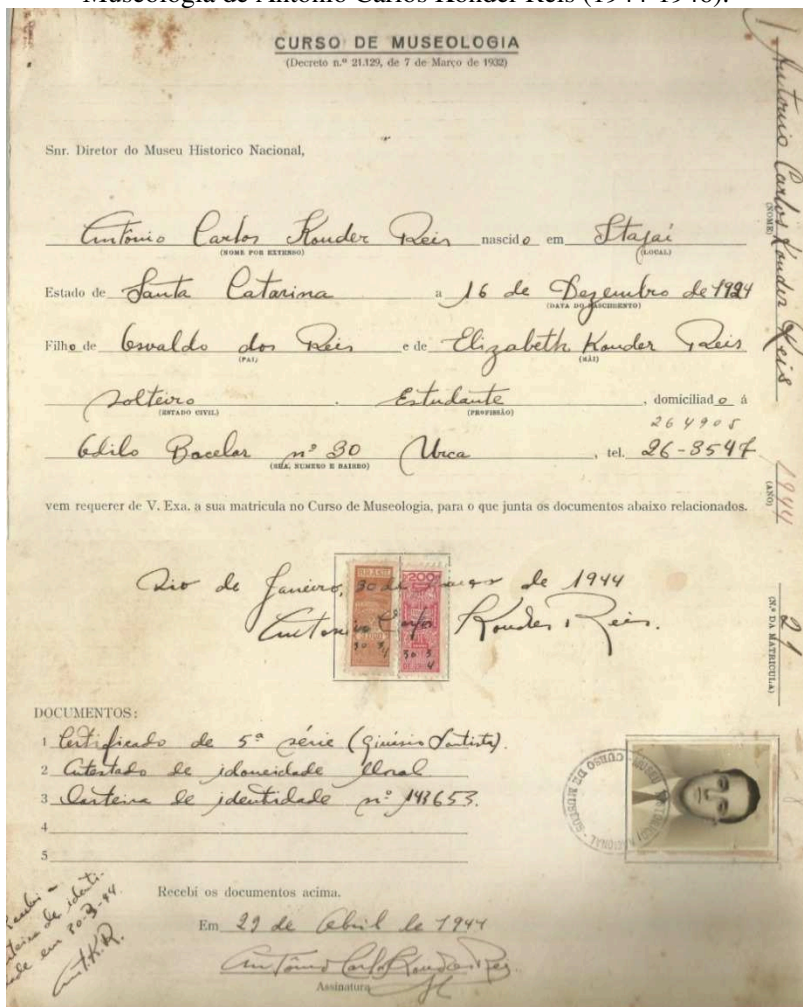 Museologia de Antônio Carlos Konder Reis (1944-1946).
CURSO DE MUSEOLOGIA
(Decreto n.º 21.129, de 7 de Março de 1932)
Snr. Diretor do Museu Historico Nacional,
Antônio Carlos Konder Reis nascido em Itajaí
(NOME POR EXTENSO) (LOCAL)
Estado de Santa Catarina a 16 de Dezembro de 1924
(DATA DO NASCIMENTO)
Filho de Osvaldo dos Reis e de Elizabeth Konder Reis
(PAI) (MÃI)
Solteiro Estudante, domiciliado á
(ESTADO CIVIL) (PROFISSÃO)
264905
Odilo Bacelar nº 30 Urca, tel. 26-3547
(RUA, NUMERO E BAIRRO)
vem requerer de V. Exa. a sua matricula no Curso de Museologia, para o que junta os documentos abaixo relacionados.
Rio de Janeiro, 30 de Março de 1944
Antonio Carlos Konder Reis.
200
DOCUMENTOS:
1 Certificado de 5ª série (Ginásio Santista).
2 Atestado de idoneidade Moral
3 Carteira de identidade nº 143653.
4
5
Recebi os documentos acima.
Em 29 de Abril de 1944
Antônio Carlos Konder Reis
Assinatura
Recebi
carteira de identi-
dade em 30-3-44.
A.C.K.R.
Antonio Carlos Konder Reis
(NOME)
1944
(ANO)
21
(N.º DA MATRICULA)
CURSO DE MUSEUS